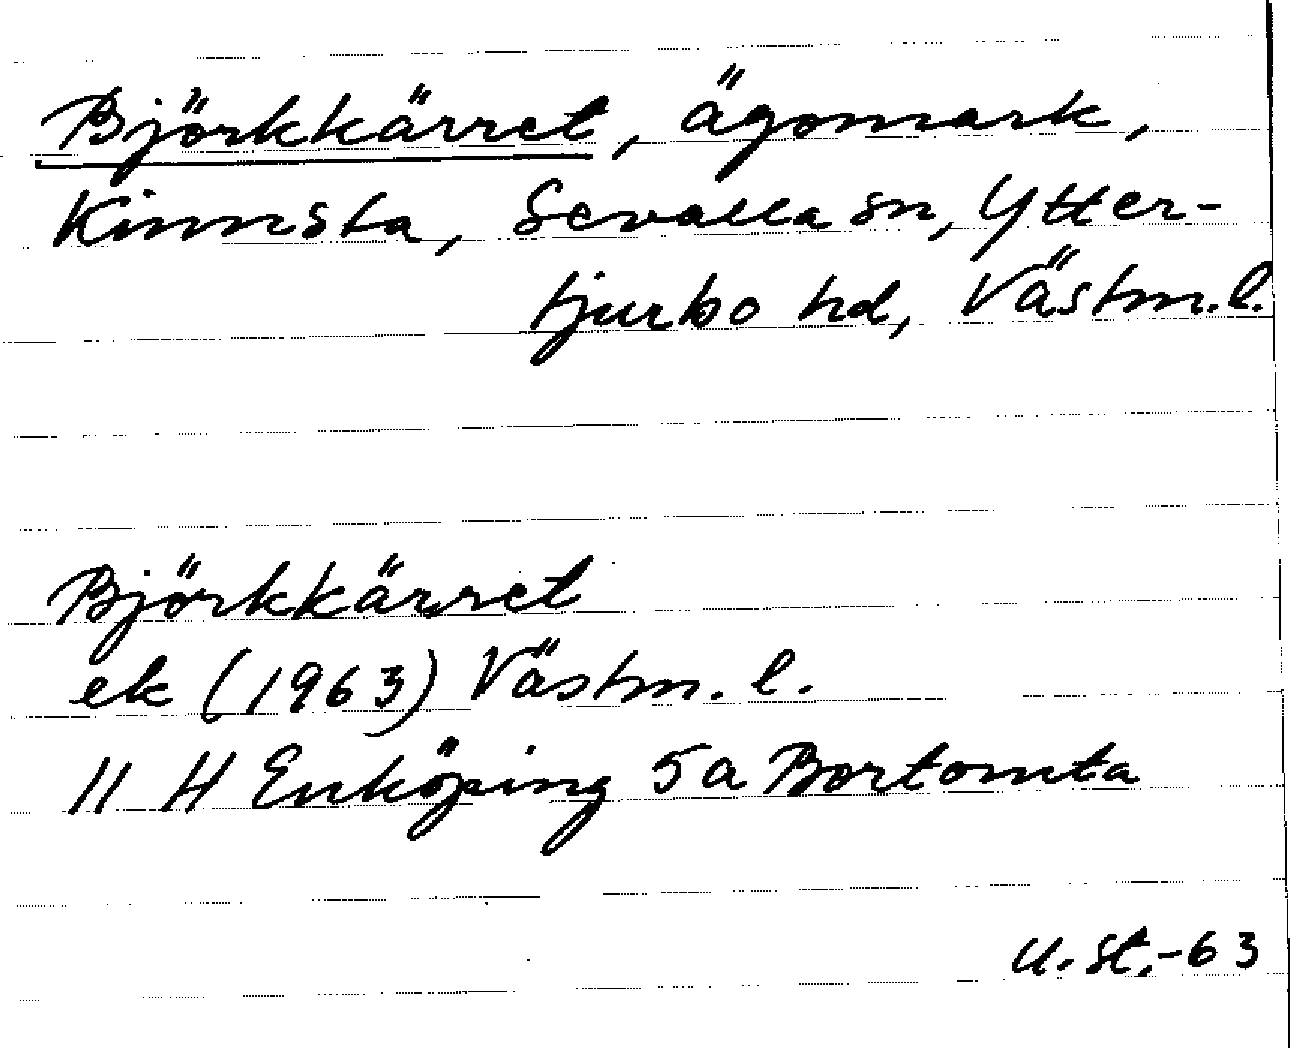 Björkkärret, ägomark,
Kinnsta, Sevalla sn, Ytter-
tjurbo hd, Västm.l.
Björkkärret
ek (1963) Västm. l.
11 H Enköping 5a Bortomta
U. St.-63